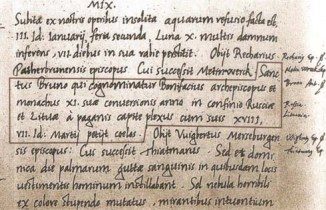 MIX.
Subita ex nostris opibus insolita aquarum refusio facta est
III. Id: Ianuarij, feria secunda, Luna X. multis damnum
inferens, VII. diebus in sua rabie perstitit. Obijt Recharius
Patherbrunensis episcopus. Cui successit Meinwerck. Sanc
tus Bruno qui cognominatur Bonifacius archiepiscopus et
monachus XI. suae conversionis anno in confinio Rusciae
et Lituae à paganis capite plexus cum suis XVIII,
VII. Id: Martij petijt coelos. Obijt Vuigbertus Merseburgen
sis episcopus: Cui successit Thiatmarus. Sed et domi
nica die palmarum gutta sanguinis in quibusdam locis
vestimentis hominum instillabant. Sol nubila horribili
ex colore stupenda mutatus, mirantibus intuentium
Bruno
Rusia
Lituae